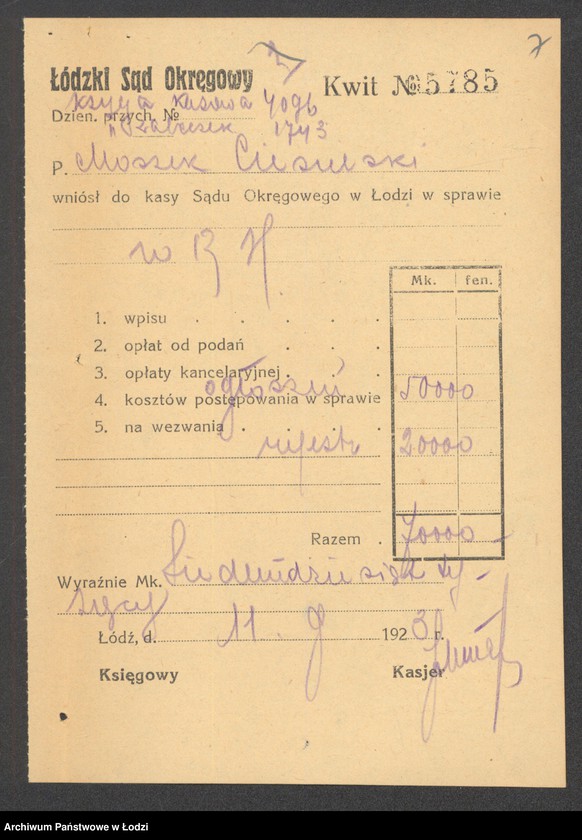 7
Łódzki Sąd Okręgowy
Kwit № 65785
Księga kasowa 4096
Dzien. przych. №
" 1743
P. Moszek Ciesielski
wniósł do kasy Sądu Okręgowego w Łodzi w sprawie
w R H
Mk. fen.
1. wpisu
2. opłat od podań
3. opłaty kancelaryjnej
ogłoszeń 50000
4. kosztów postępowania w sprawie
5. na wezwania
rejestr 20000
Razem 70000 -
Wyraźnie Mk. Siedemdziesiąt ty-
sięcy
Łódź, d. 11. 9 1923 r.
Księgowy Kasjer
Archiwum Państwowe w Łodzi